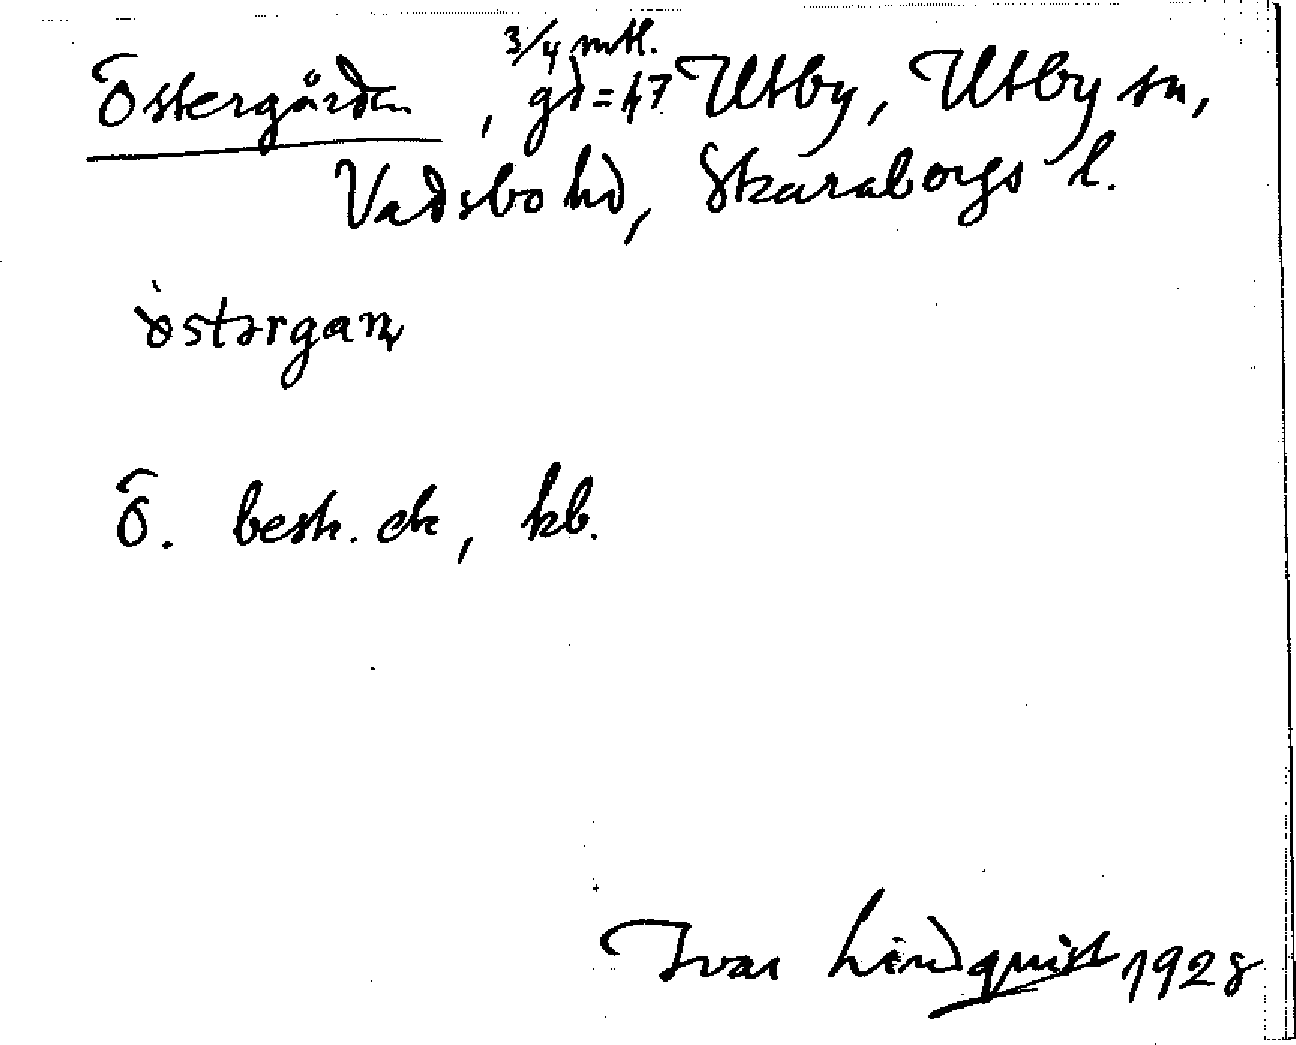 Östergården, 3/4 mtl. gd = h7 Utby, Utby sn,
Vadsbo hd, Skaraborgs l.
östərgaɳ
Ö. besk. ek, kb.
Ivar Lindquist 1928